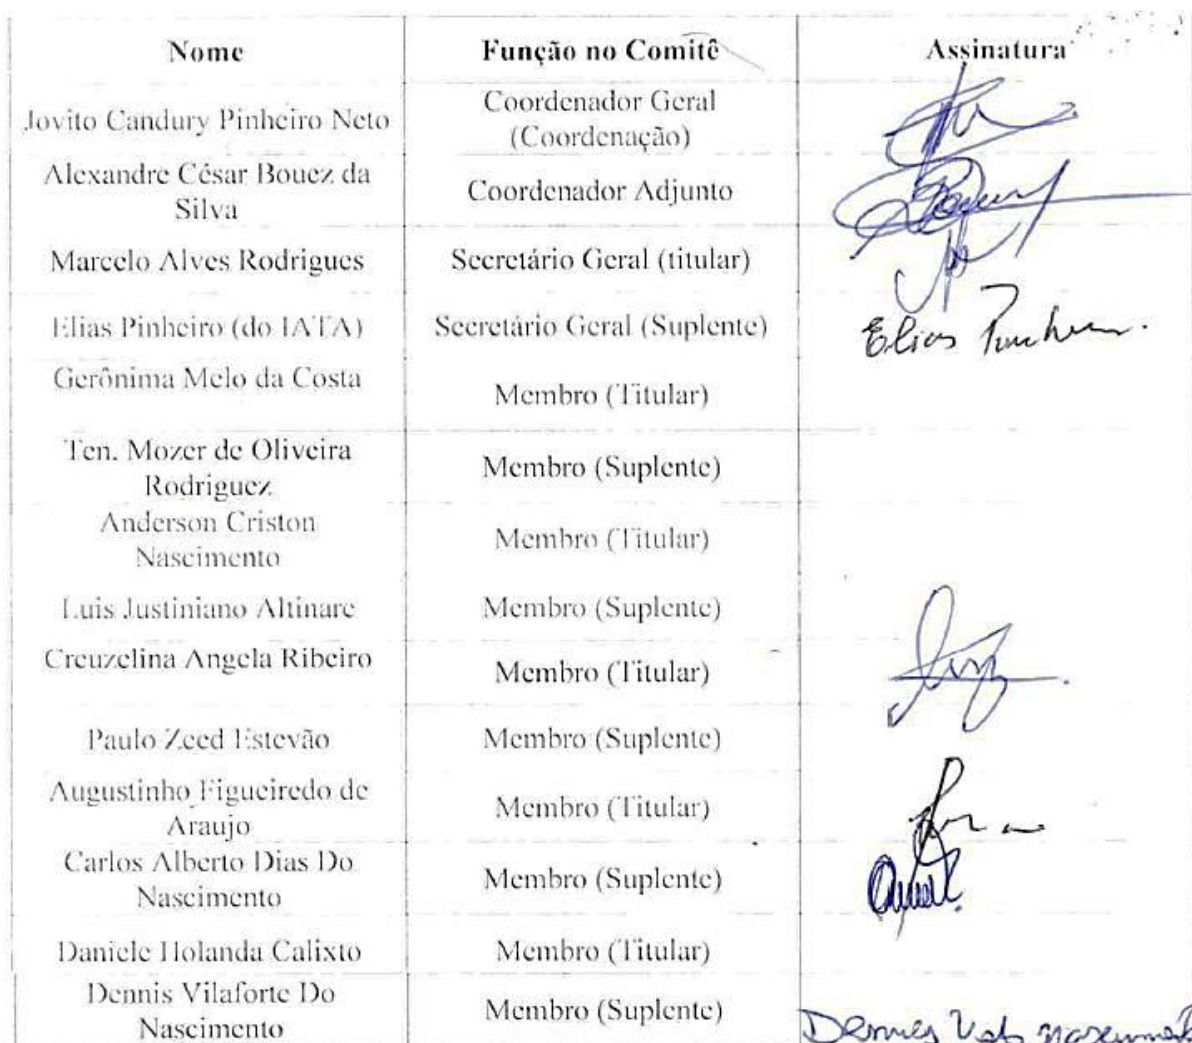 Nome Função no Comitê Assinatura
Jovito Candury Pinheiro Neto Coordenador Geral
(Coordenação)
Alexandre César Bouez da
Silva Coordenador Adjunto
Marcelo Alves Rodrigues Secretário Geral (titular)
Elias Pinheiro (do IATA) Secretário Geral (Suplente) Elias Pinheiro.
Gerônima Melo da Costa Membro (Titular)
Ten. Mozer de Oliveira
Rodriguez Membro (Suplente)
Anderson Criston
Nascimento Membro (Titular)
Luis Justiniano Altinare Membro (Suplente)
Creuzelina Angela Ribeiro Membro (Titular)
Paulo Zeed Estevão Membro (Suplente)
Augustinho Figueiredo de
Araujo Membro (Titular)
Carlos Alberto Dias Do
Nascimento Membro (Suplente)
Daniele Holanda Calixto Membro (Titular)
Dennis Vilaforte Do
Nascimento Membro (Suplente)